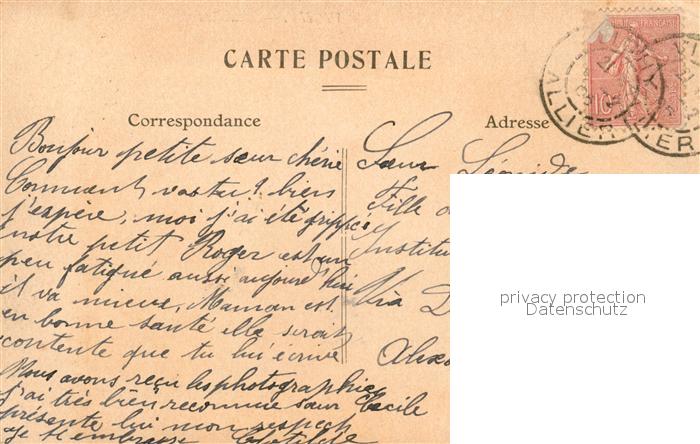 CARTE POSTALE
RÉPUBLIQUE FRANÇAISE
10
VICHY
ALLIER
Correspondance
Adresse
Bonjour petite sœur chérie
Comment vas tu? bien
j'espère, moi j'ai été grippé
notre petit Roger est un
peu fatigué aussi aujourd'hui
il va mieux, Maman est
en bonne santé elle serait
contente que tu lui écrive
Nous avons reçu les photographies
j'ai très bien reconnue sœur Cecile
présente lui mon respect
je t'embrasse Clotilde
Sœur Léonide
Fille
Institu
Via D
Alexa
privacy protection
Datenschutz